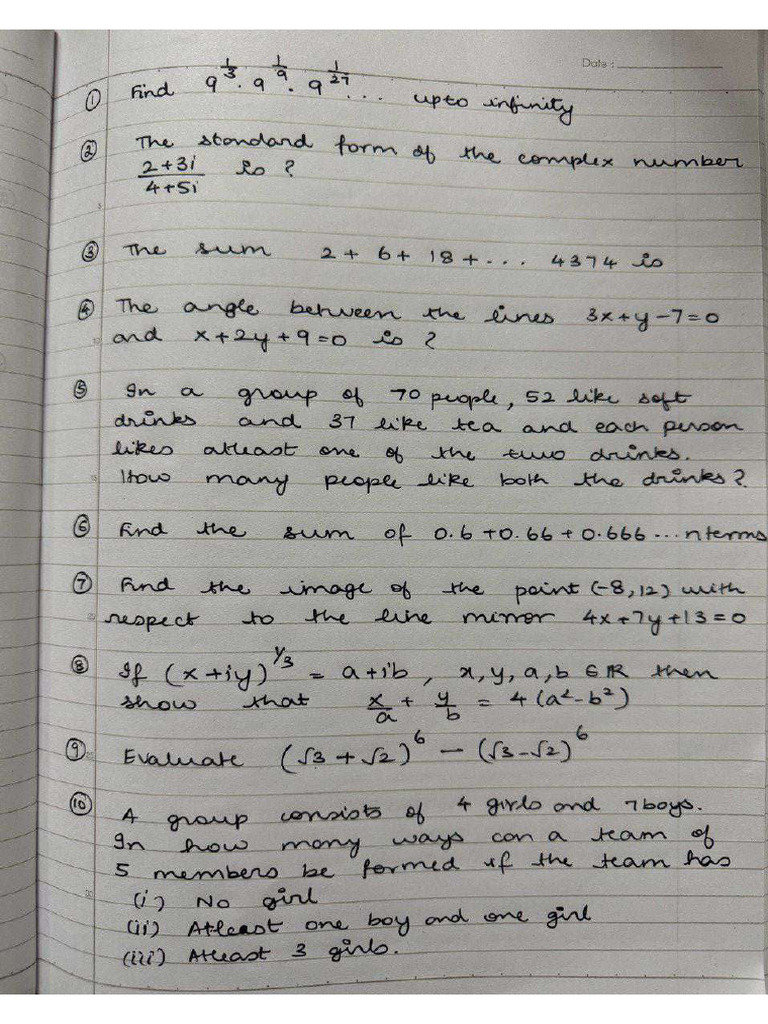 Date :
① Find 9^(1/3) . 9^(1/9) . 9^(1/27) ... upto infinity
② The standard form of the complex number
(2+3i)/(4+5i) is ?
③ The sum 2 + 6 + 18 + ... 4374 is
④ The angle between the lines 3x+y-7=0
and x+2y+9=0 is ?
⑤ In a group of 70 people, 52 like soft
drinks and 37 like tea and each person
likes atleast one of the two drinks.
How many people like both the drinks?
⑥ Find the sum of 0.6+0.66+0.666... n terms
⑦ Find the image of the point (-8,12) with
respect to the line mirror 4x+7y+13=0
⑧ If (x+iy)^(1/3) = a+ib, x,y,a,b ∈ IR then
show that x/a + y/b = 4(a²-b²)
⑨ Evaluate (√3+√2)^6 - (√3-√2)^6
⑩ A group consists of 4 girls and 7 boys.
In how many ways can a team of
5 members be formed if the team has
(i) No girl
(ii) Atleast one boy and one girl
(iii) Atleast 3 girls.